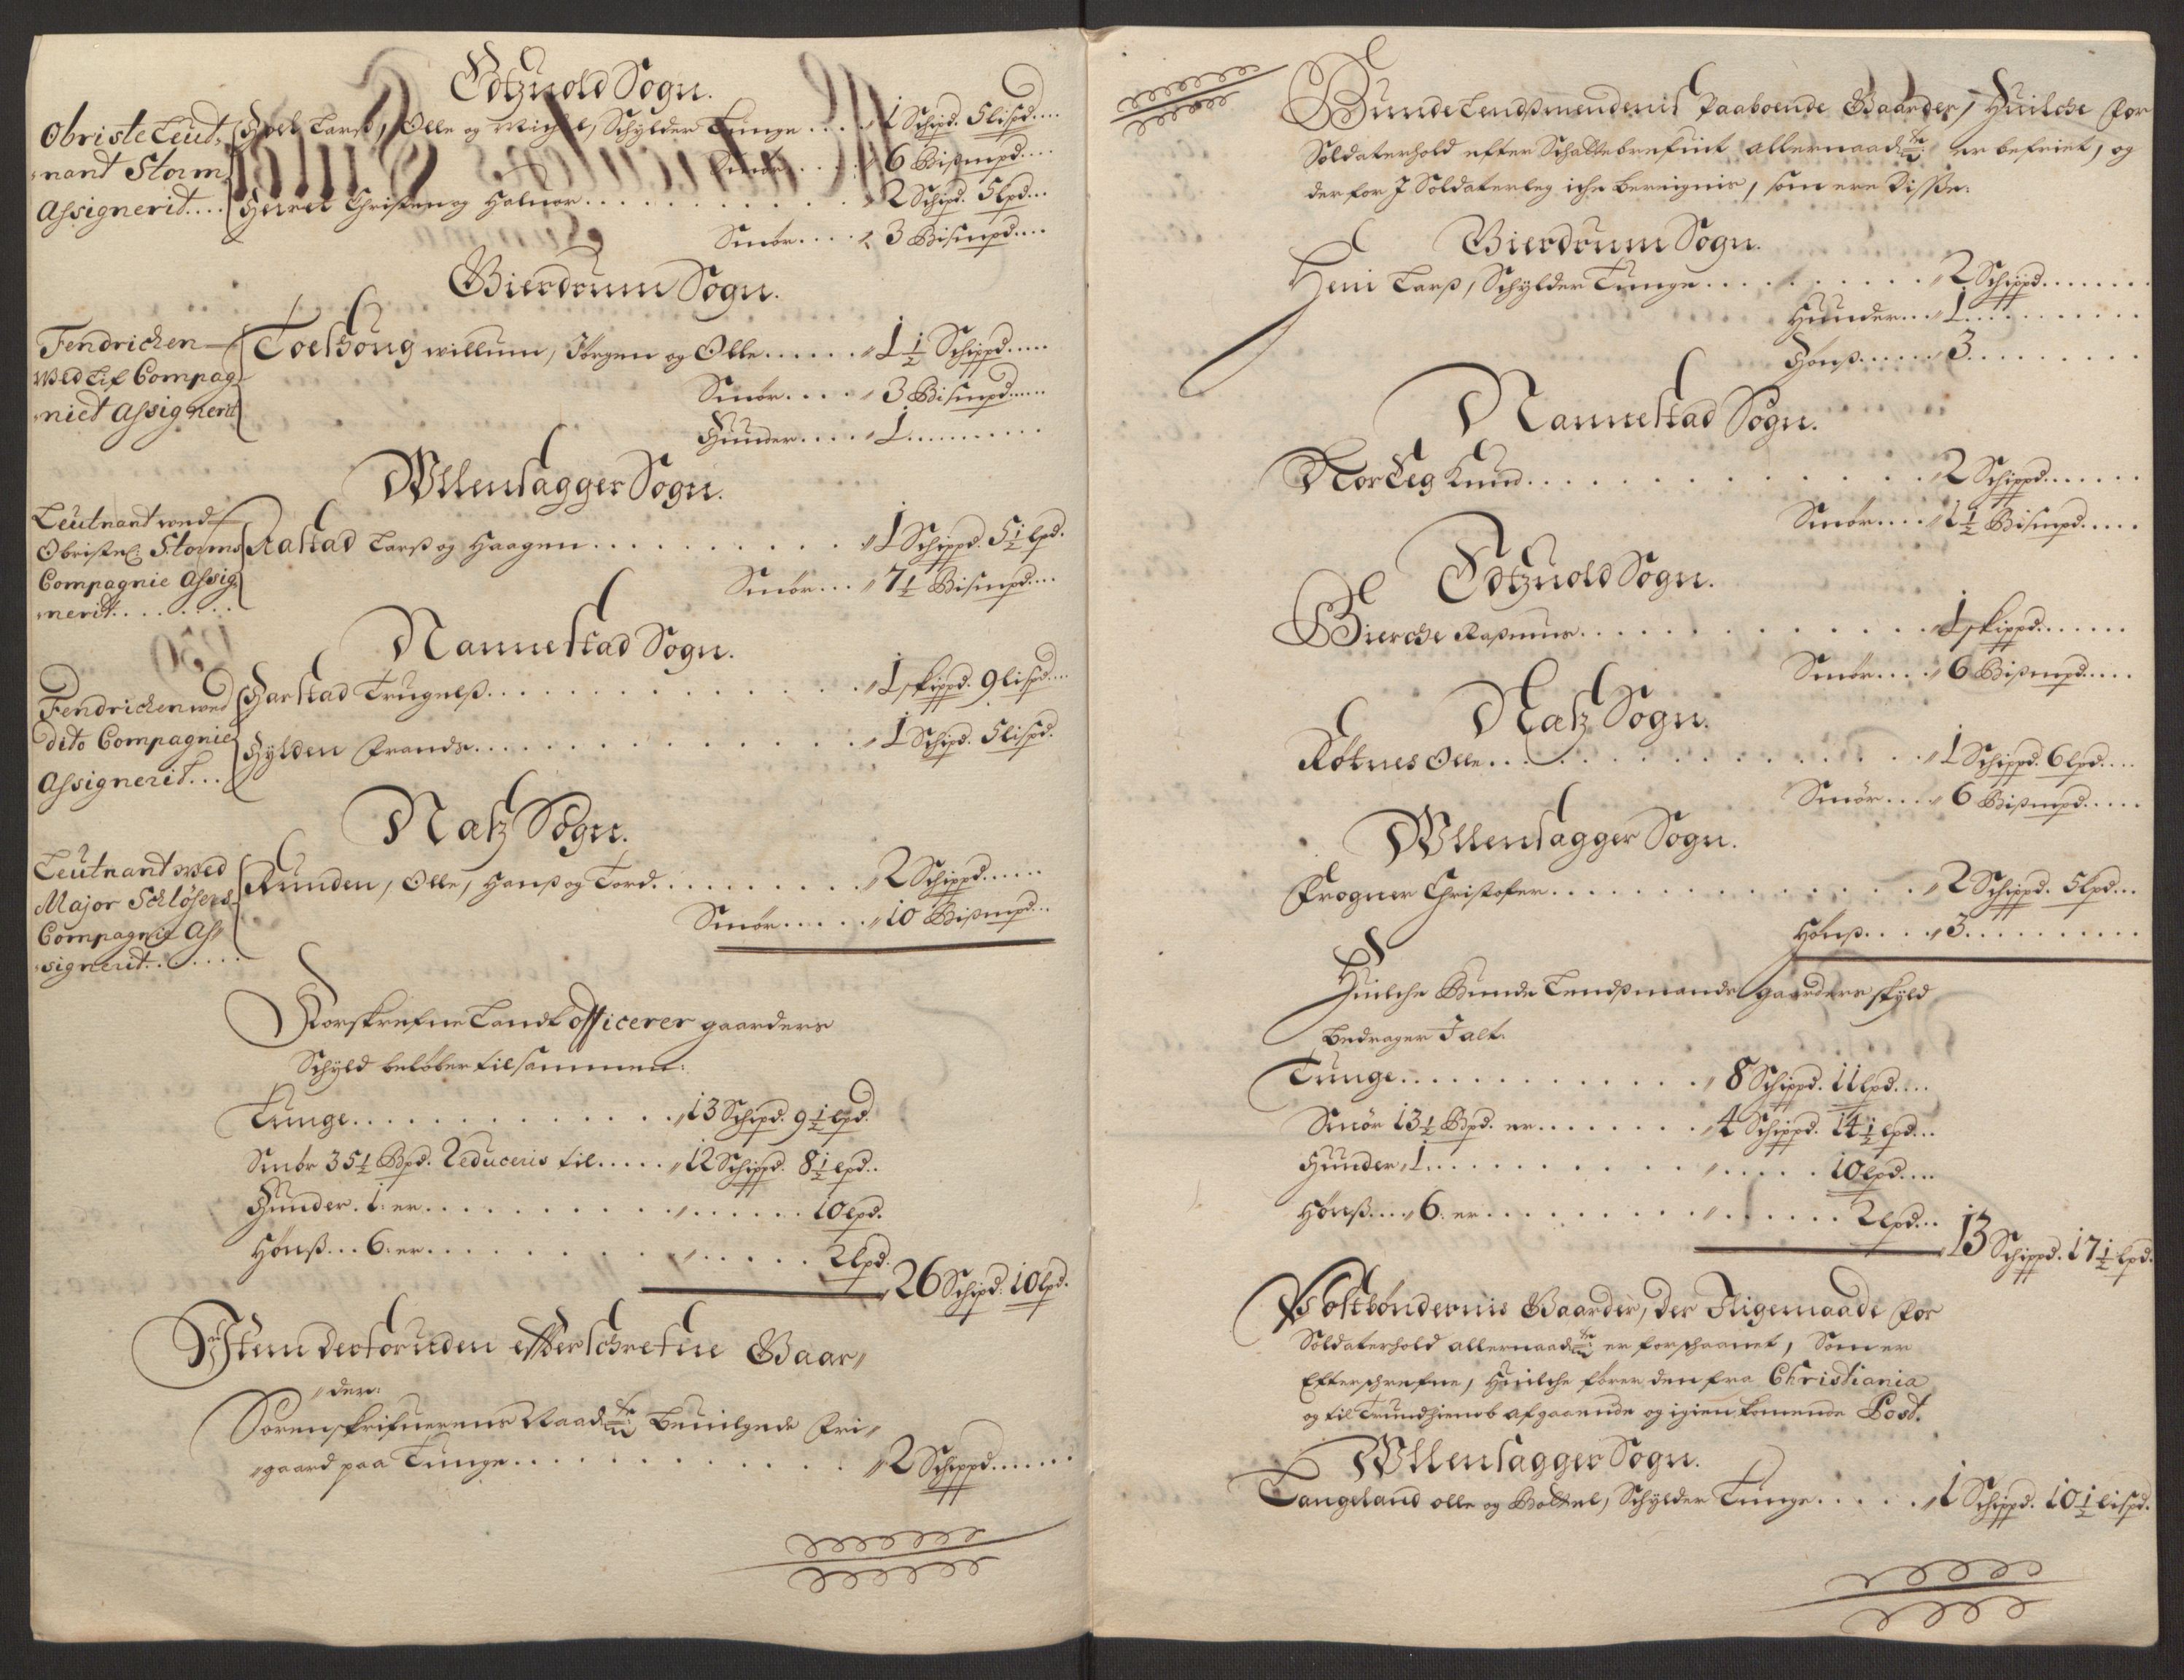 Edtzuold Sogn.
Obriste Leut-
nant Storm
Assignerit....
Hoel Larß, Olle og Michel, Schylder Tunge.... 1 Schipd. 5 lispd....
Smør.... 6 Bißmpd....
Herret Christen og Halvor.......... 2 Schipd. 5 lpd...
Smør.... 3 Bismpd....
Gierdrum Sogn.
Fendrichen
wed Lif Compag-
niet Assignerit
Toelhoug willum, Jørgen og Olle...... 1½ Schippd.....
Smør.... 3 Bismpd.....
Hunder.... 1..........
Wllensagger Sogn.
Leutnant wed
Obristel: Storms
Compagnie Assig-
nerit........
Rastad Larß og Haagen........ 1 Schippd. 5½ lpd.
Smør... 7½ Bismpd....
Nannestad Sogn.
Fendrichen wed
dito Compagnie
Assignerit...
Harstad Trugelß.......... 1 skippd. 9 lispd...
Hylden Frands.......... 1 Schipd. 5 lispd.
Natz Sogn.
Leutnant wed
Major Schløsers
Compagnie As-
signerit.......
Runden, Olle, Hanß og Tord.......... 2 Schippd......
Smør..... 10 Bißmpd...
Forskrefne Landt officerer gaarders
Schyld beløber tilsammen:
Tunge............ 13 Schipd. 9½ lpd.
Smør 35½ Bpd. Reduceris til..... 12 Schippd. 8½ lpd..
Hunder. 1. er.......... 10 lpd.
Hønß... 6. er.......... 2 lpd.
26 Schipd. 10 lpd.
Item desforuden efterschrefne Gaar-
der:
Sorenskrifuerens Naadste: Beuilgede Fri-
gaard paa Tunge............ 2 Schippd......
Bunde Lendßmendenis Paaboende Gaarder, Huilche for
Soldaterhold efter Schattebrefuit allernaadste: er befriet, og
derfor J Soldaterleg iche bereignis, som ere Disse:
Gierdrum Sogn.
Heni Larß, Schylder Tunge.......... 2 Schippd........
Hunder... 1..........
Hønß...... 3..........
Nannestad Sogn.
Nordeg Knud............ 2 Schippd.......
Smør.... 1½ Bismpd.....
Edtzuold Sogn.
Bierche Raßmus............ 1 skippd.......
Smør.... 6 Bißmpd.....
Natz Sogn.
Røtnes Olle............ 1 Schippd. 6 lpd....
Smør.... 6 Bißmpd.....
Wllensagger Sogn.
Frogner Christofer............ 2 Schippd. 5 lpd...
Hønß.... 3..........
Huilche Bunde Lendßmænds gaarders skyld
bedrager J alt.
Tunge............ 8 Schippd. 11 lpd....
Smør 13½ Bpd. er........ 4 Schippd. 14½ lpd...
Hunder 1.......... 10 lpd....
Hønß.... 6. er.......... 2 lpd...
13 Schippd. 17½ lpd.
Postbøndernis Gaarder, der Ligemaade for
Soldaterhold allernaadste: er forschaanet, Som er
Efterschrefne, Huilche fører den fra Christiania
og til Trundhiemb afgaaende og igien komende Post.
Wllensagger Sogn.
Langeland olle og Boltel, Schylder Tunge...... 1 Schippd. 10½ lispd.